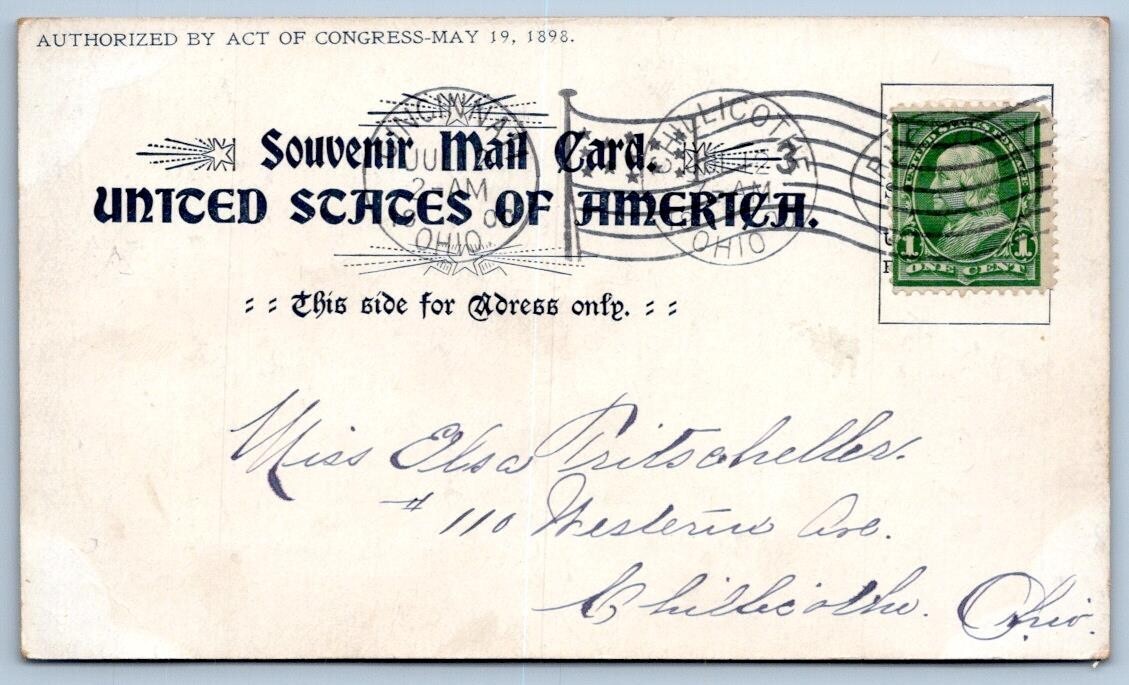 AUTHORIZED BY ACT OF CONGRESS-MAY 19, 1898.
Souvenir Mail Card.
UNITED STATES OF AMERICA.
: : This side for Adress only. : :
2-AM
OHIO
CHILLICOTHE
3
12
AM
OHIO
UNITED STATES POSTAGE
1 1
ONE CENT
Miss Elsa Pritscheller.
# 110 Western Ave.
Chillicothe. Ohio.